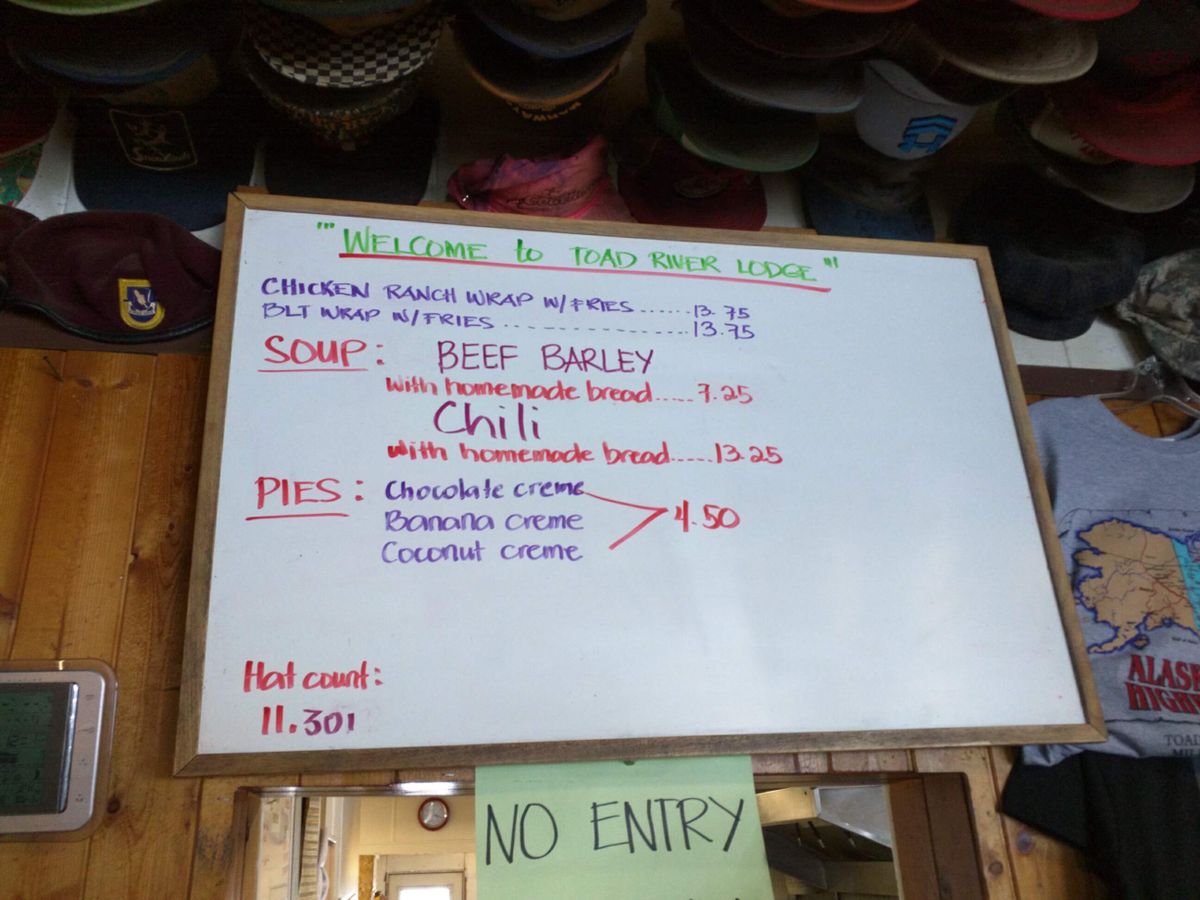 "'WELCOME to TOAD RIVER LODGE"'
CHICKEN RANCH WRAP W/FRIES ...... 13.75
BLT WRAP W/FRIES ................ 13.75
SOUP: BEEF BARLEY
with homemade bread..... 7.25
Chili
with homemade bread.....13.25
PIES: Chocolate creme
4.50
Banana creme
Coconut creme
Hat count:
11.301
NO ENTRY